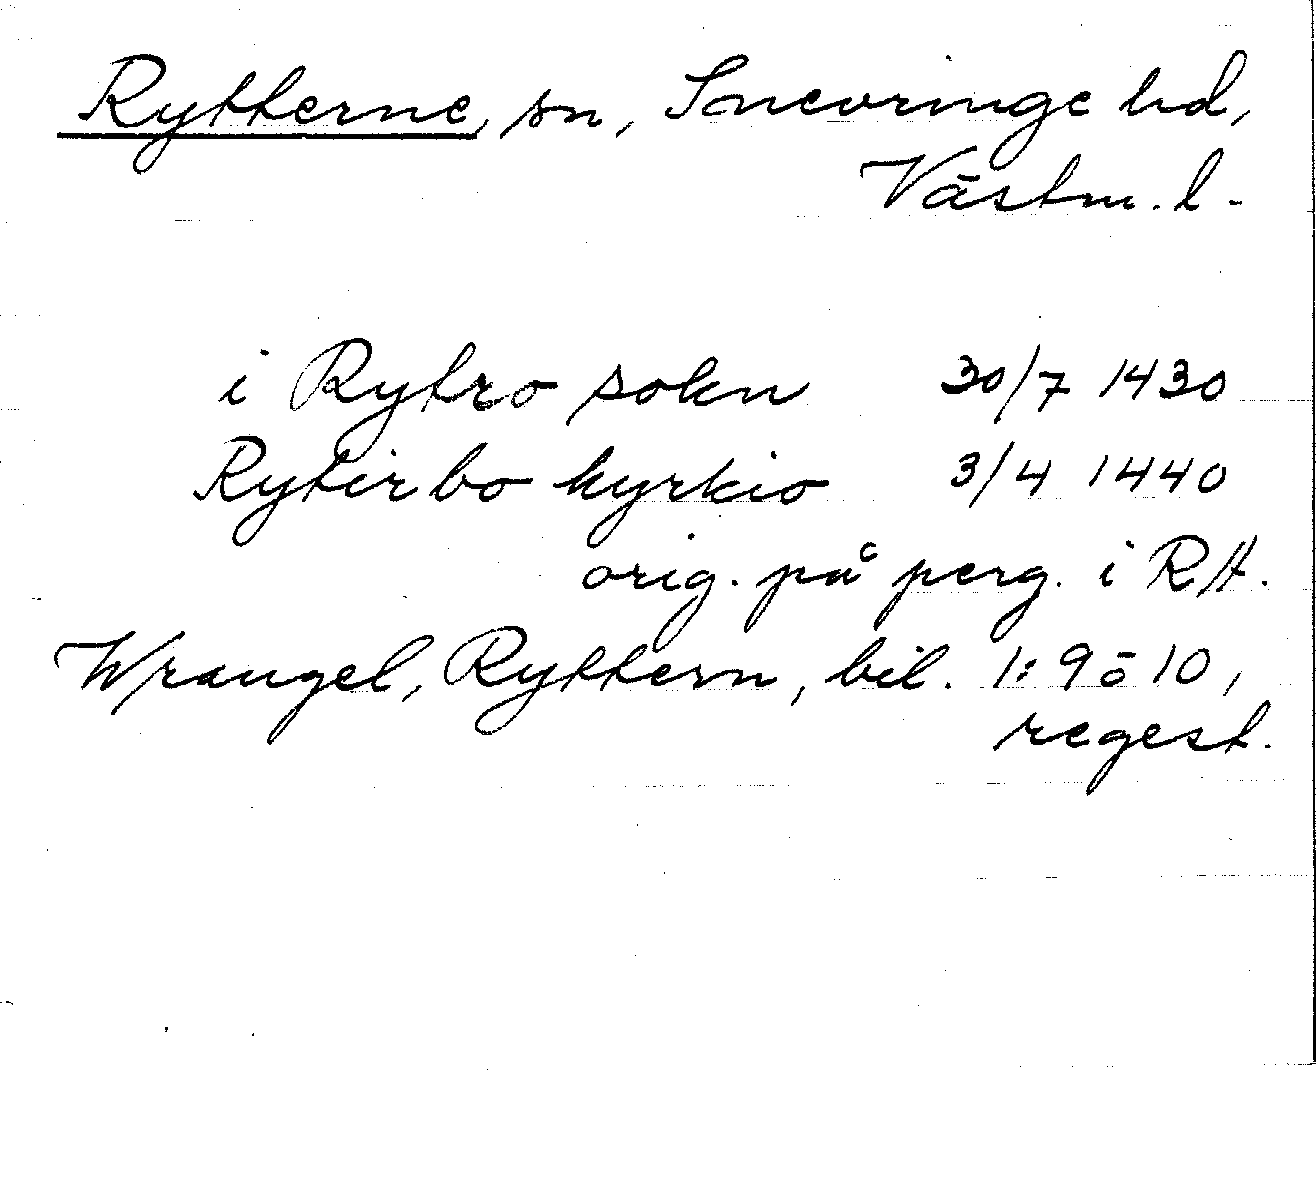 Rytterne, sn, Snevringe hd,
Västm. l.
i Rytro sokn 30/7 1430
Rytirbo kyrkio 3/4 1440
orig. på perg. i RA.
Wrangel, Ryttern, bil. 1:9 o 10,
regest.